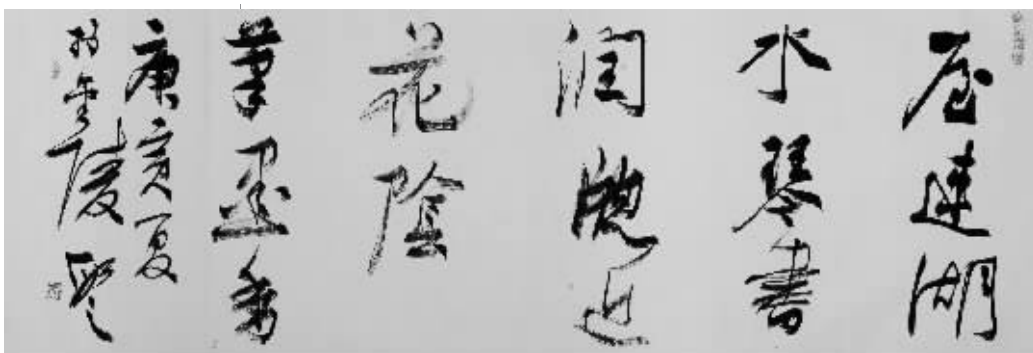 屋連湖
水琴書
潤窗近
花陰
筆墨香
庚寅夏
於金陵